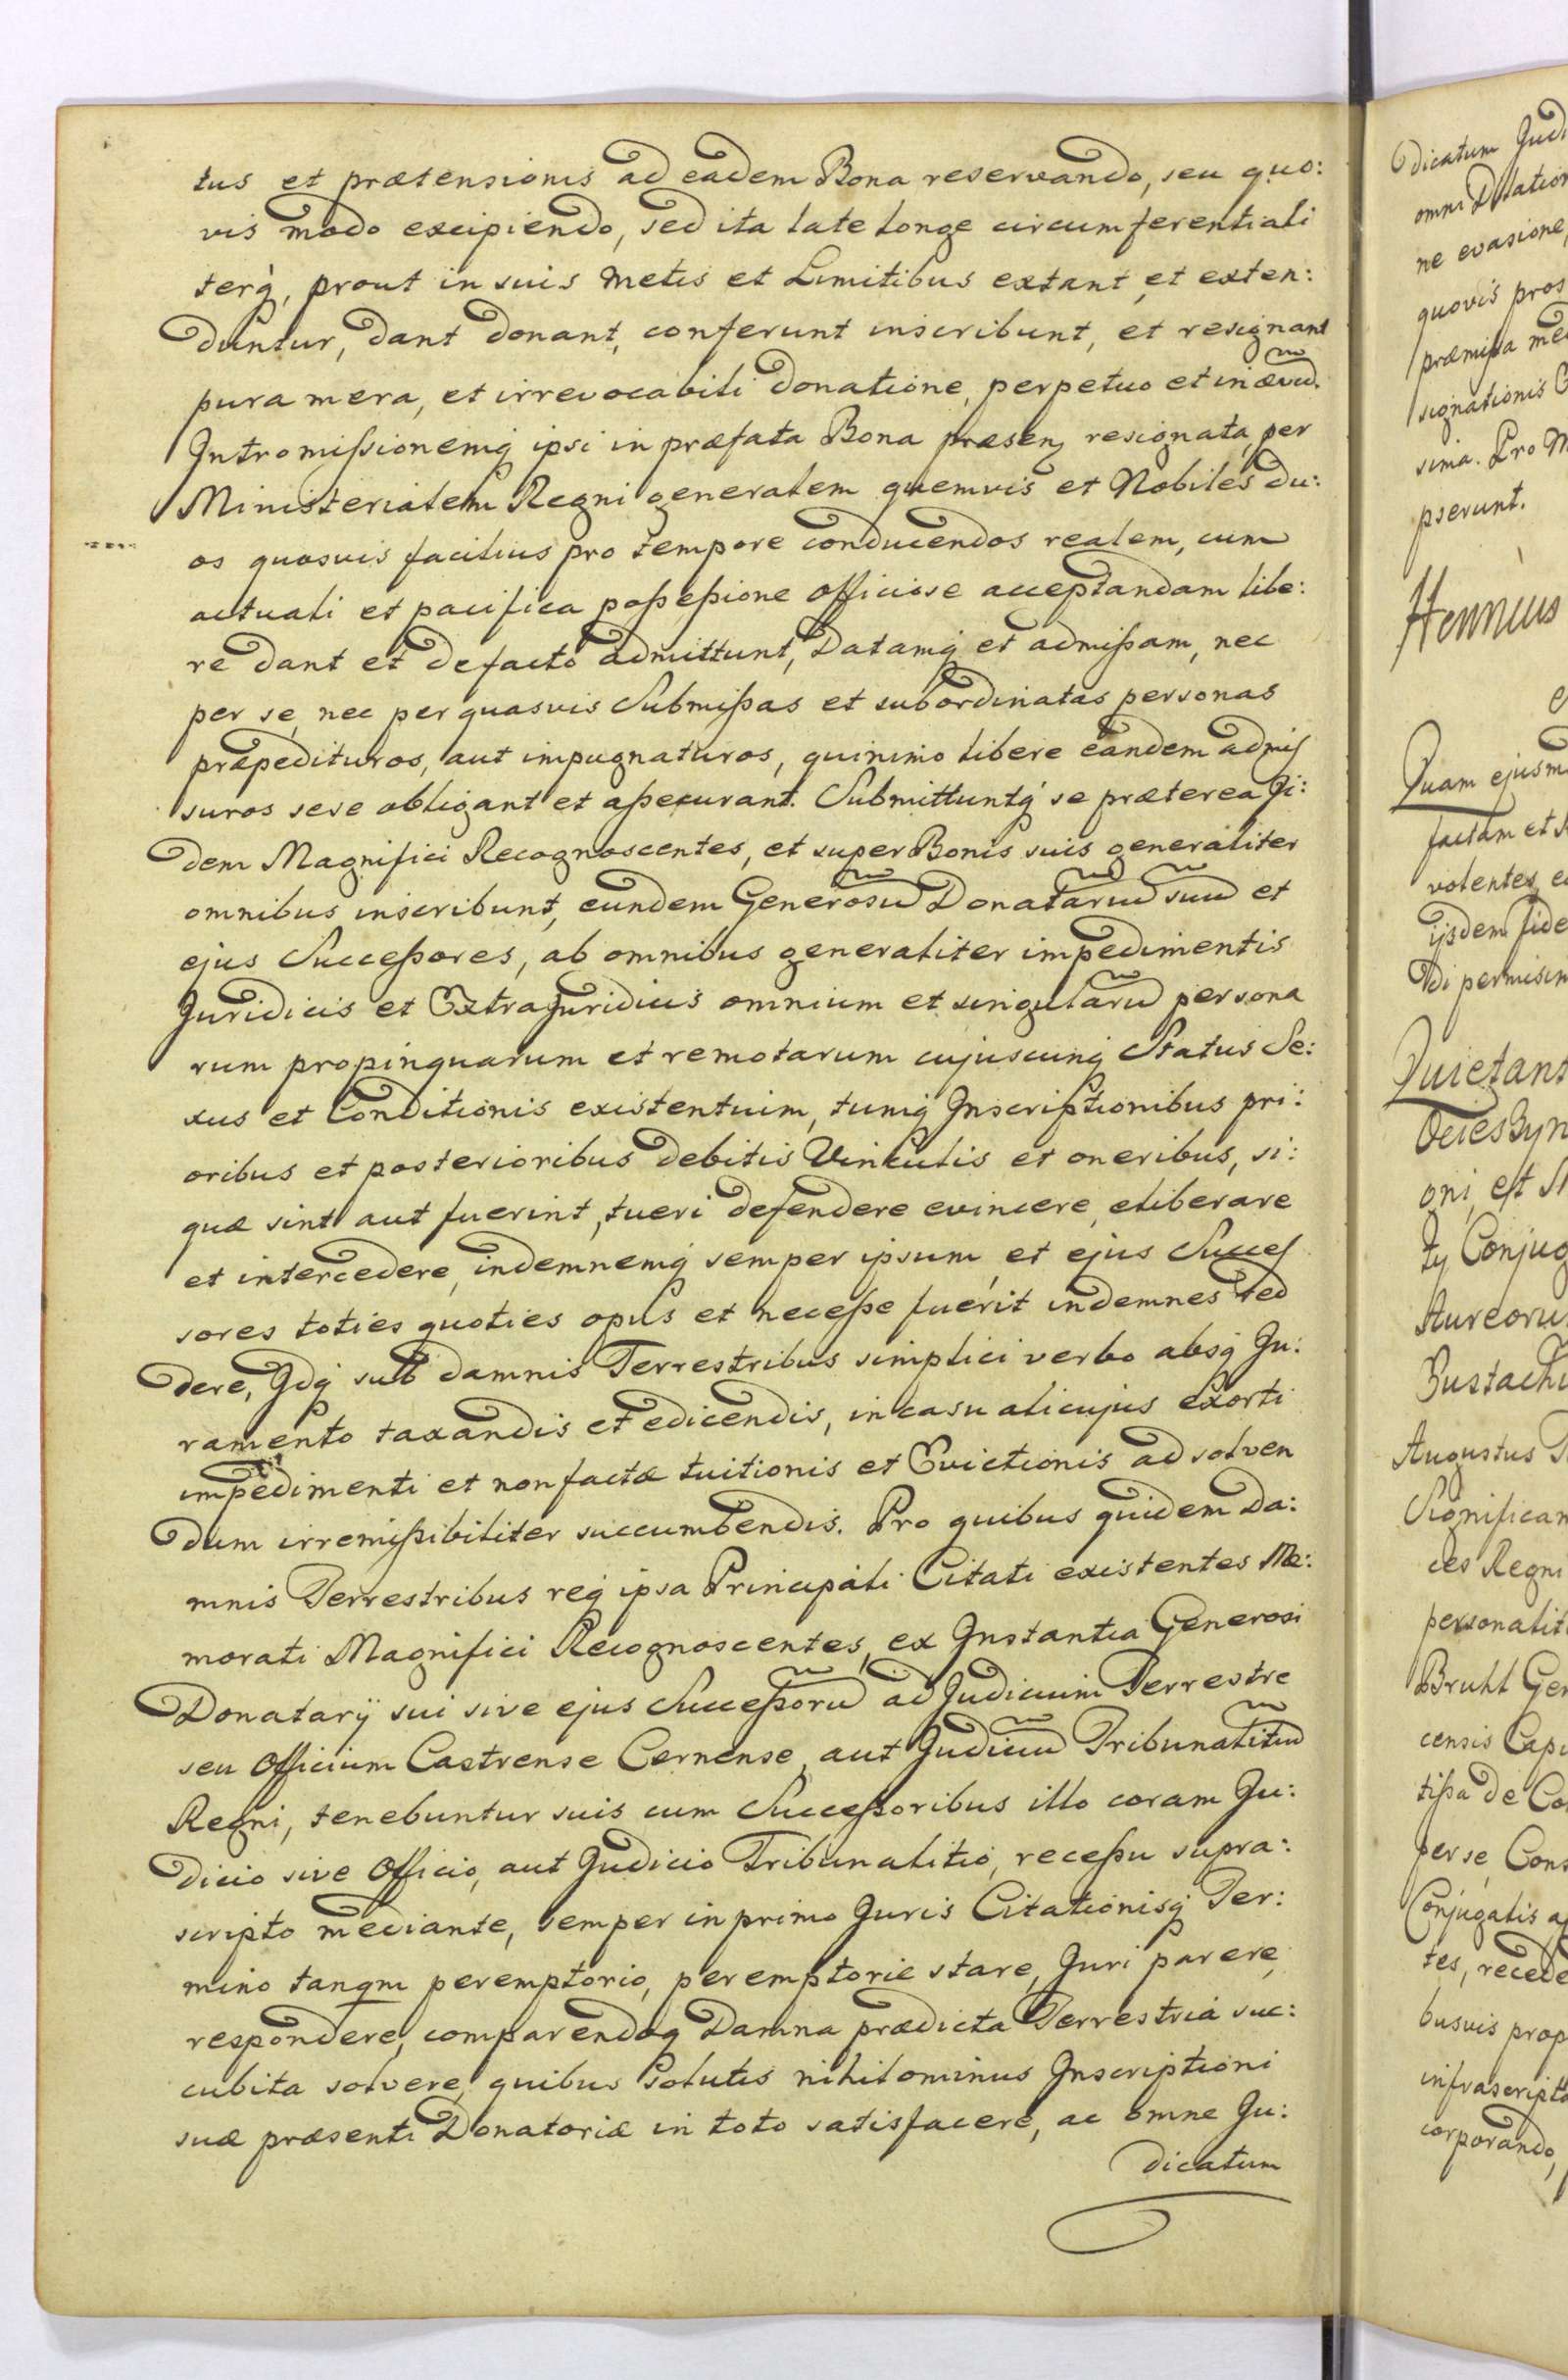 tus et prætensionis ad eadem Bona reservando, seu quo:
vis modo excipiendo, sed ita late longe circumferentiali
terq́, prout in suis Metis et Limitibus extant, et exten:
duntur, dant donant, conferunt inscribunt, et resignant
pura mera, et irrevocabili donatione, perpetuo et in ævū.
Intromißionemq́ ipsi in præfata Bona præsenȝ resignata, per
Ministerialem Regni generalem quemvis et Nobiles du:
os quosvis facilius pro tempore conducendos realem, cum
actuali et pacifica poßeßione officiose acceptandam libe:
re dant et de facto admittunt, Datamq́ et admißam, nec
per se, nec per quasvis Submißas et subordinatas personas
præpedituros, aut impugnaturos, quinimo libere eandem admis
suros sese obligant et aßecurant. Submittuntq́ se præterea Ji:
dem Magnifici Recognoscentes, et super Bonis suis generaliter
omnibus inscribunt, eundem Generosū Donatariū suū et
ejus Succeßores, ab omnibus generaliter impedimentis
Juridicis et ExtraJuridicis omnium et singularū persona
rum propinquarum et remotarum cujuscunq́ Status Se:
xus et Conditionis existentium, tumq́ Inscriptionibus pri:
oribus et posterioribus debitis Vinculis et oneribus, si:
quæ sint aut fuerint, tueri defendere evincere, eliberare
et intercedere, indemnemq́ semper ipsum, et ejus Succes
sores toties quoties opus et neceße fuerit indemnes red
dere, Idq́ sub damnis Terrestribus simplici verbo absq́ Ju:
ramento taxandis et edicendis, in casu alicujus exorti
impedimenti et non factæ tuitionis et Evictionis ad solven
dum irremißibiliter succumbendis. Pro quibus quidem Da:
mnis Terrestribus req́ ipsa Principali Citati existentes Me:
morati Magnifici Recognoscentes, ex Instantia Generosi
Donatarÿ sui sive ejus Succeßorū ad Judicium Terrestre
seu Officium Castrense Cernense, aut Judiciū Tribunalitiū
Regni, tenebuntur suis cum Succeßoribus illo coram Ju:
dicio sive Officio, aut Judicio Tribunalitio, receßu supra:
scripto mediante, semper in primo Juris Citationisq́ Ter:
mino tanqm peremptorio, peremptorie stare, Juri parere,
respondere, comparendoq́ Damna prædicta Terrestria suc:
cubita solvere, quibus solutis nihilominus Inscriptioni
suæ præsenti Donatoriæ in toto satisfacere, ac omne Ju:
dicatum
dicatum Judi
omni Dilation
ne evasione,
quovis pros
præmißa me
signationis
sima. Pro
pserunt.
Hennicus
Quam ejusm
factam et
volentes,
ijsdem fide
di permiser
Quietant
oni, est
Conjug
Aureoru
Eustachi
Augustus
Significan
ces Regni
personalit
Bruhl Gen
censis Capi
tißa de Co
per se, Cons
Conjugalis
tes, recede
busvis prop
infrascripto
corporando,